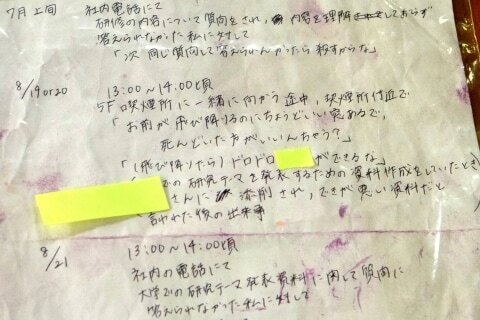 7月上旬 社内電話にて
研修の内容について質問をされ、内容を理解しておらず
答えられなかった私に対して
「次 同じ質問して答えられんかったら殺すからな」
8/19or20 13:00～14:00頃
5F喫煙所に一緒に向かう途中、喫煙所付近で
「お前が飛び降りるのにちょうどいい窓あるで、
死んどいた方がいいんちゃう?」
「(飛び降りたら)ドロドロ ができるな」
での研究テーマを発表するための資料作成をしていたとき
さんに 添削され、できが悪い資料だと
言われた後の出来事
8/21 13:00～14:00頃
社内の電話にて
大学での研究テーマ発表資料に関して質問に
答えられなかった私に対して